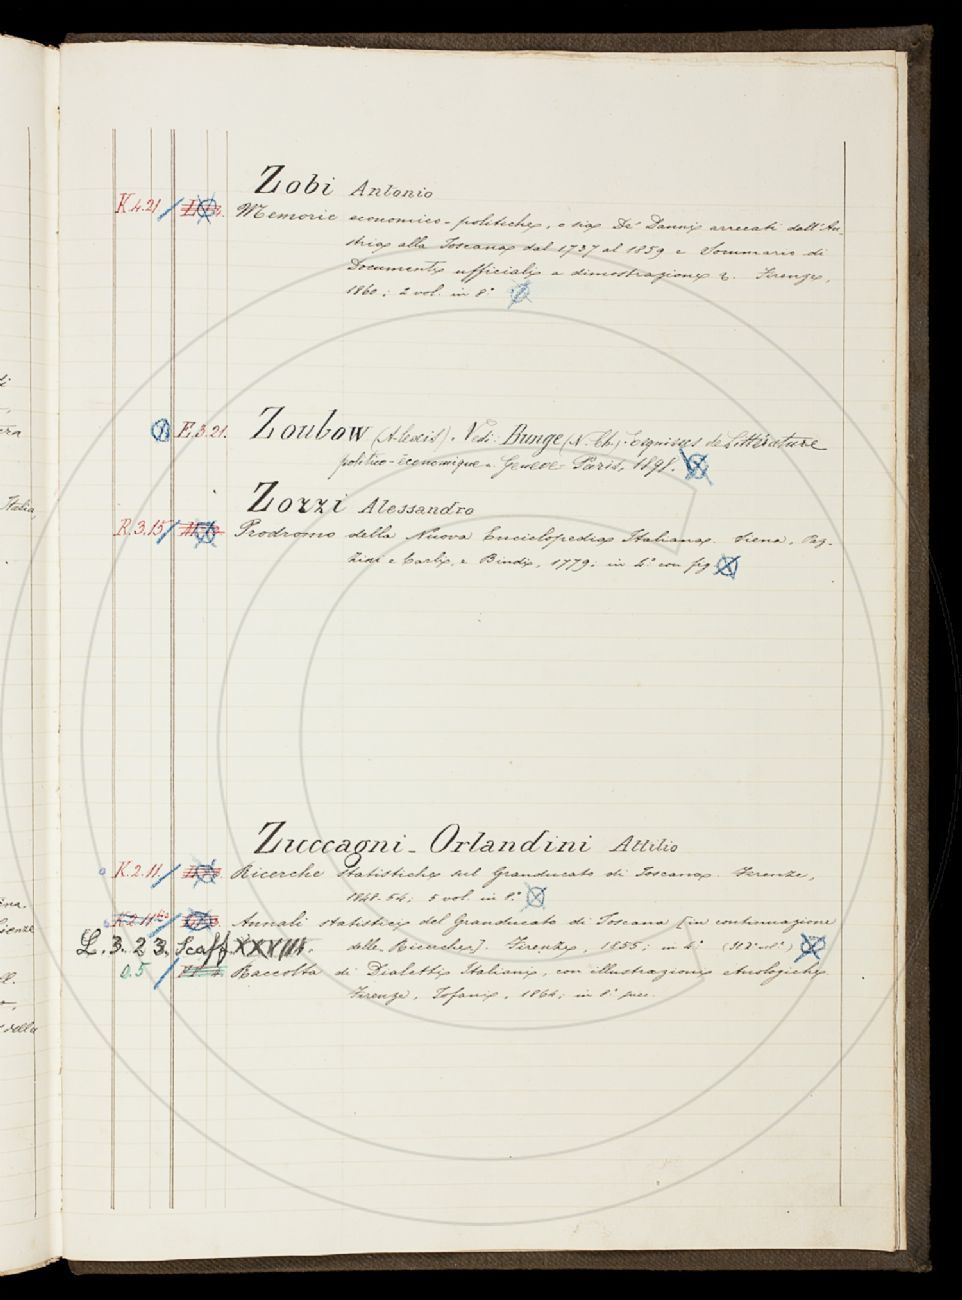 Zobi Antonio
K.4.21 Memorie economico-politiche, o sia De' Danni arrecati dall'Au-
stria alla Toscana dal 1737 al 1859 e Sommario di
Documenti ufficiali a dimostrazione &. Firenze,
1860; 2 vol. in 8.°
E.3.21. Zoubow (Alexis). Vedi: Bunge (N. Ch.). Esquisses de Littérature
politico-économique. Genève-Paris, 1898.
Zorzi Alessandro
R.3.15 Prodromo della Nuova Enciclopedia Italiana. Siena, Paz-
zini e Carli, e Bindi, 1779; in 4.° con fig.
Zuccagni-Orlandini Attilio
K.2.11. Ricerche Statistiche sul Granducato di Toscana. Firenze,
1848-54; 5 vol. in 8.°
K.2.11 bis Annali statistici del Granducato di Toscana [in continuazione
L.3.23. Scaff. XXVIII. delle Ricerche]. Firenze, 1855; in 4.°
0.5 Raccolta di Dialetti Italiani, con illustrazioni etnologiche.
Firenze, Tofani, 1864; in 8.° picc.